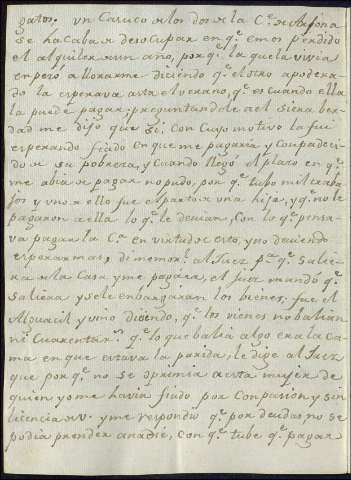 gatos. Un Caruco de los dos de la C.ᵉ de
se ha caba de desocupar en q.ᵉ emos perdido
el alquiler de un año, porq.ᵉ la que la vivia
en pero a llorarme diciendo q.ᵉ el otro apodera-
do la esperava asta el verano, q.ᵉ es cuando ella
la puede pagar; preguntandole a el si era ber-
dad me dijo que si, con cuyo motivo la fui
esperando fiado en que me pagaria y compadeci-
do de su pobreza, y cuando llegó el plazo en q.ᵉ
me abia de pagar no pudo, por q.ᵉ tubo mil traba-
jos y uno de ello fue el parto de una hija, y q.ᵉ no le
pagaron a ella lo q.ᵉ le devian, con lo q.ᵉ pensa-
va pagar la C.ᵃ en virtud de esto, y no deviendo
esperar mas, di memor.ˡ al Juez p.ᵃ q.ᵉ saliera
de la Casa y me pagara, el Juez mandó q.ᵉ
saliera y se le embargaran los bienes, fue el
Alguacil y vino diciendo, q.ᵉ los vienes no balian
ni cuarenta r.ˢ q.ᵉ lo que balia algo era la ca-
ma en que estava la parida, le dige al Juez
que por q.ᵉ no se apremia a esta mujer de
quien yo me havia fiado por Compasion y sin
licencia de V. y me respondió q.ᵉ por deudas, no se
podia prender a nadie, con q.ᵉ tube q.ᵉ pagar